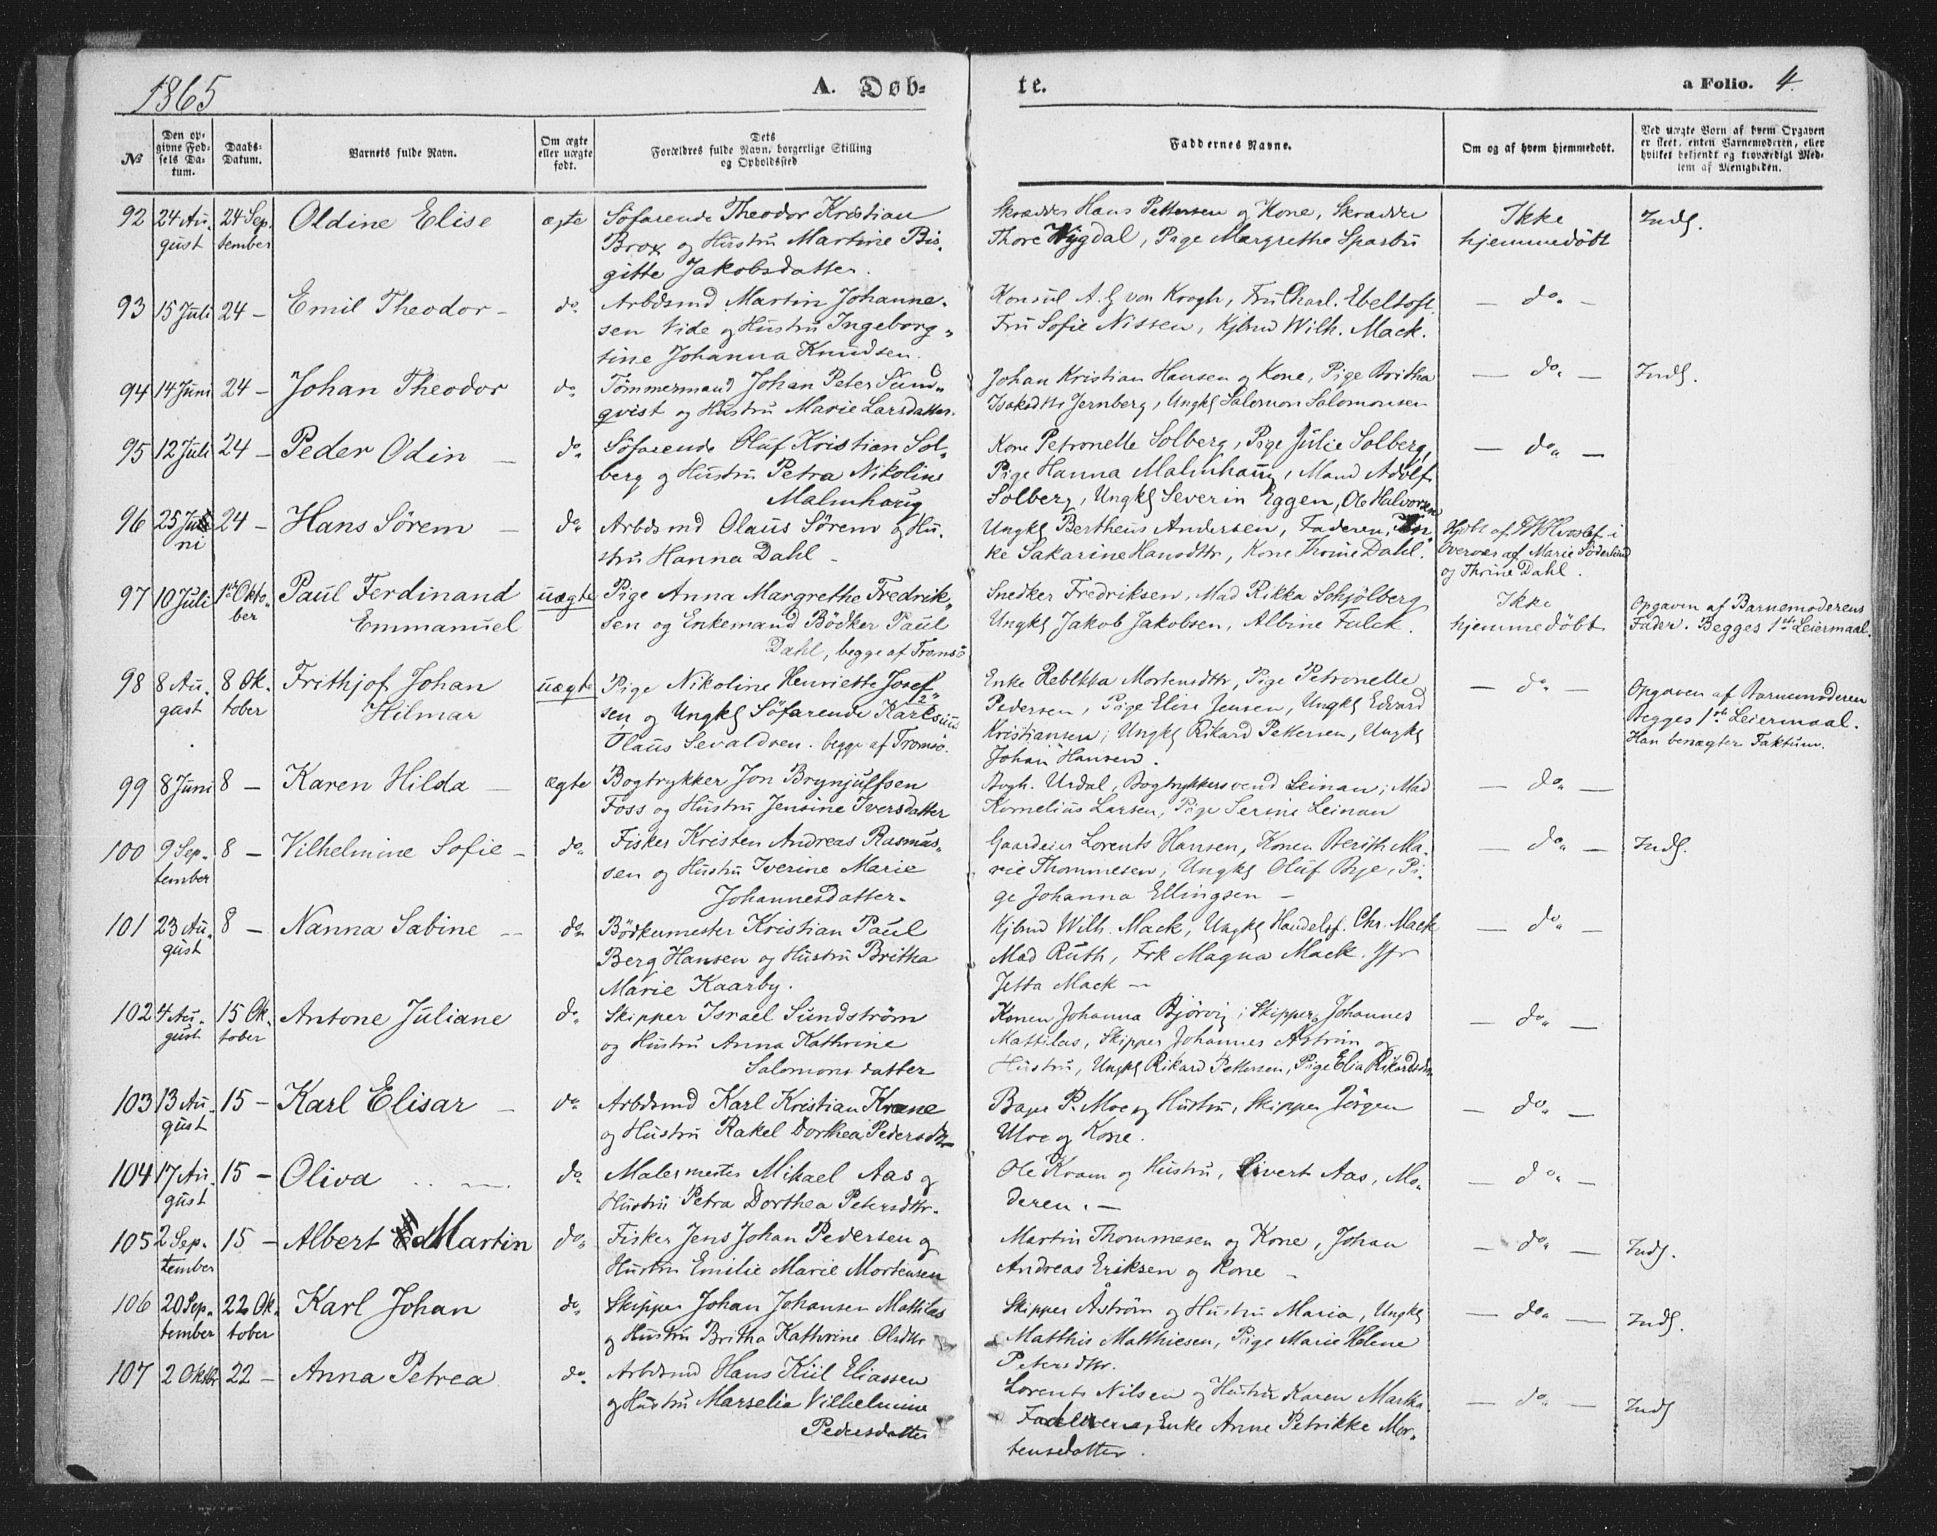 1865 A. Døb- te. a Folio. 4.
№ Den opgivne Fødsels Datum. Daabs-Datum. Barnets fulde Navn. Om ægte eller uægte født. Dets Forældres fulde Navn, borgerlige Stilling og Opholdssted Faddernes Navne. Om og af hvem hjemmedøbt. Ved uægte Børn af hvem Opgaven er skeet, enten Barnemoderen, eller hvilket bekjendt og troværdigt Medlem af Menigheden.
92 24 Au- 24 Sep- Oldine Elise ægte Søfarende Theodor Kristian Skrædder Hans Pettersen og Kone, Skrædder Ikke Inds.
gust tember Brox og Hustru Martine Bir- Thore Wigdal, Pige Margrethe Sparbu hjemmedöbt
gitte Jakobsdatter.
93 15 Juli 24 — Emil Theodor — do Arbdsmd Martin Johanne- Konsul A. G von Krogh, Fru Charl. Ebeltoft, — do —
sen Vide og Hustru Ingeborg Fru Sofie Nissen, Kjbmd Wilh. Mack.
tine Johanna Knudsen.
94 14 Juni 24 — Johan Theodor do Tömmermand Johan Peter Sund- Johan Kristian Hansen og Kone, Pige Britha — do — Inds.
qvist og Hustru Marie Larsdatter. Isaksdtr Jernberg, Ungk Salomon Salomonsen
95 12 Juli 24 — Peder Odin — do Söfarende Oluf Kristian Sol- Kone Petronelle Solberg, Pige Julie Solberg, — do —
berg og Hustru Petra Nikoline Pige Hanna Malmhaug, Mand Adolf
Malmhaug Solberg, Ungk Severin Eggen, Ole Halvorsen
96 25 Ju- 24 — Hans Sörem — do Arbdsmd Olaus Sörem og Hu- Ungk Bertheus Andersen, Faderen, Hjdbt af Hvoslef i
ni stru Hanna Dahl — Sakarine Hansdtr, Kone Thrine Dahl. Overvær af Marie Söderlund
og Thrine Dahl.
97 10 Juli 1ste Okto- Paul Ferdinand uægte Pige Anna Margrethe Fredrik- Snedker Fredriksen, Mad Rikka Schjölberg Ikke Opgaven af Barnemoderens
ber Emmanuel sen og Enkemand Bödker Paul Ungk Jakob Jakobsen, Albine Falck. hjemmedöbt Fader. Begges 1ste Leiermaal.
Dahl, begge af Tromsö
98 8 Au- 8 Ok- Frithjof Johan uægte Pige Nikoline Henriette Josef- Enke Rebekka Mortensdtr, Pige Petronelle — do — Opgaven af Barnemoderen
gust tober Hilmar sen og Ungk Söfarende Pedersen, Pige Elise Jensen, Ungk Edvard Begges 1ste Leiermaal.
Olaus Sevaldsen. begge af Tromsö. Kristiansen, Ungk Rikard Pettersen, Ungk Han benægter Faktum.
Johan Hansen.
99 8 Juni 8 — Karen Hilda — ægte Bogtrykker Jon Brynjulfsen Bogh. Urdal, Bogtrykkersvend Leinan, Mad — do —
Foss og Hustru Jensine Iversdatter Kornelius Larsen, Pige Serine Leinan
100 9 Sep- 8 — Vilhelmine Sofie — do Fisker Kristen Andreas Rasmus- Gaardeier Lorents Hansen, Konen Berith Ma- — do — Inds.
tember sen og Hustru Iverine Marie rie Thommesen, Ungk Oluf Bye, Pi-
Johannesdatter. ge Johanna Ellingsen —
101 23 Au- 8 — Nanna Sabine — do Bödkermester Kristian Paul Kjbmd Wilh. Mack, Ungk Handelsf. Chr. Mack — do —
gust Berg Hansen og Hustru Britha Mad Ruth, Frk Magna Mack. Jfr
Marie Kaarby. Jetta Mack —
102 4 Au- 15 Ok- Antone Juliane do Skipper Israel Sundström Konen Johanna Björvig, Skipper Johannes — do —
gust tober og Hustru Anna Kathrine Mattilas, Skipper Johannes Aström og
Salomonsdatter Hustru, Ungk Rikard Pettersen, Pige Elia Rikardsdtr
103 13 Au- 15 — Karl Elisar — do Arbdsmd Karl Kristian Krane P. Moe og Hustru, Skipper Jörgen — do —
gust og Hustru Rakel Dorthea Pedersdtr Moe og Kone.
104 17 Au- 15 — Oliva do Malermester Mikael Aas og Ole Kvam og Hustru, Sivert Aas, Mo- — do —
gust Hustru Petra Dorthea Petersdtr. deren. —
105 2 Sep- 15 — Albert Martin do Fisker Jens Johan Pedersen og Martin Thommesen og Kone, Johan — do — Inds.
tember Hustru Emilie Marie Mortensen Andreas Eriksen og Kone —
106 20 Sep- 22 Ok- Karl Johan do Skipper Johan Johansen Mattilas Skipper Åström og Hustru Maria, Ungk — do — Inds.
tember tober og Hustru Britha Kathrine Olsdtr Matthis Matthiesen, Pige Marie Helene
Petersdtr.
107 2 Oktbr 22 — Anna Petrea do Arbdsmd Hans Kiil Eliassen Lorents Nilsen og Hustru Karen Martha — do — Inds
og Hustru Marselie Vilhelmine Fadderne, Enke Anne Petrikke Mor-
Pedersdatter tensdatter.